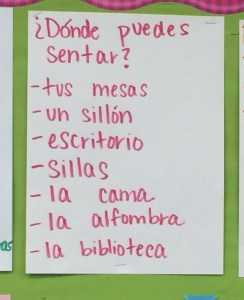 ¿Dónde puedes
sentar?
- tus mesas
- un sillón
- escritorio
- Sillas
- la cama
- la alfombra
- la biblioteca